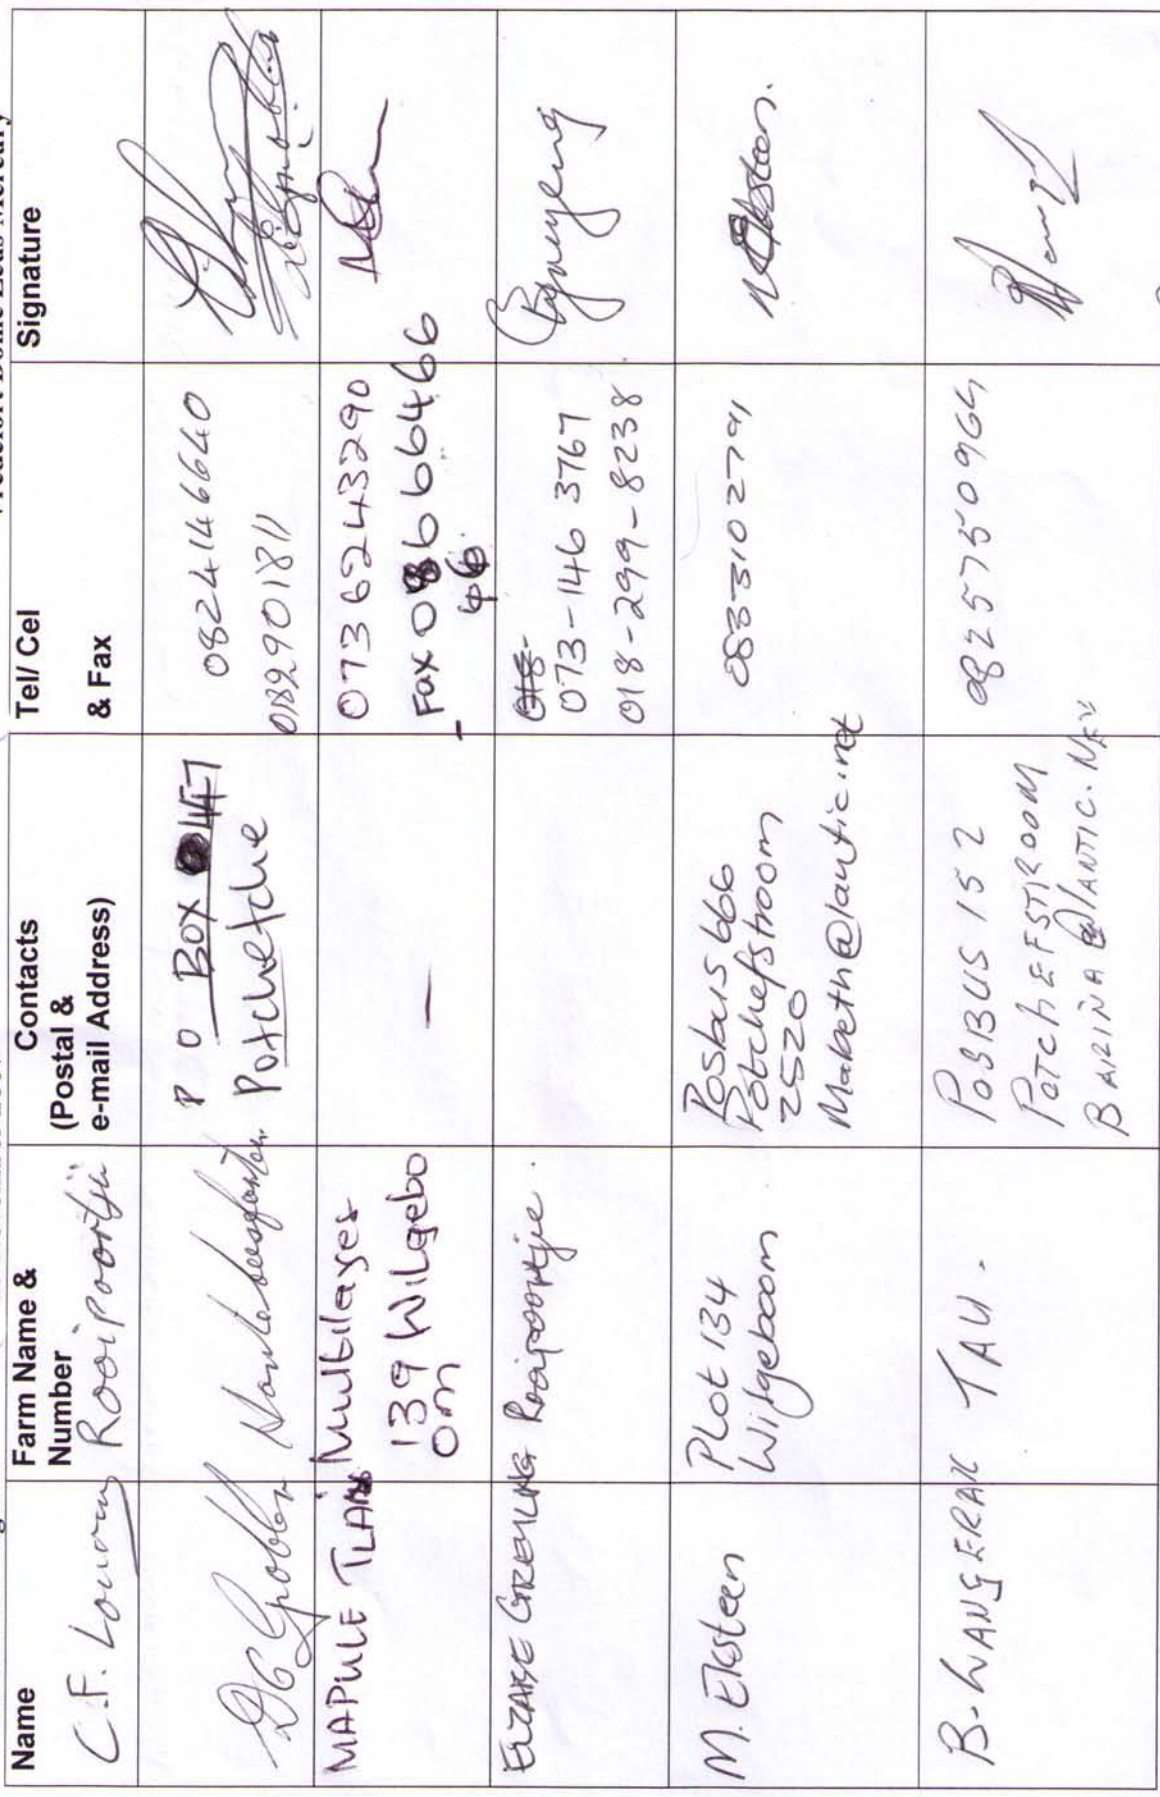 Name
Farm Name &
Number
Contacts
(Postal &
e-mail Address)
Tel/ Cel
& Fax
Signature
C.F. Rooipoortjie
DG Grobler
P O BOX
Potchetche
0824146640
0182901811
MAPULE Multilayer
139 Wilgebo
om
—
073 6243290
Fax 086 6 66466
- 46
GREYLING Rooipoortjie.
018-
073-146 3767
018-299-8238
M. Eksteen
Plot 134
Wilgeboom
Posbus 666
Potchefstroom
2520
Mabeth@lantic.net
0833102791
Eksteen.
B. TAU.
POSBUS 152
POTCHEFSTROOM
BARINA@LANTIC.NET
0825750964